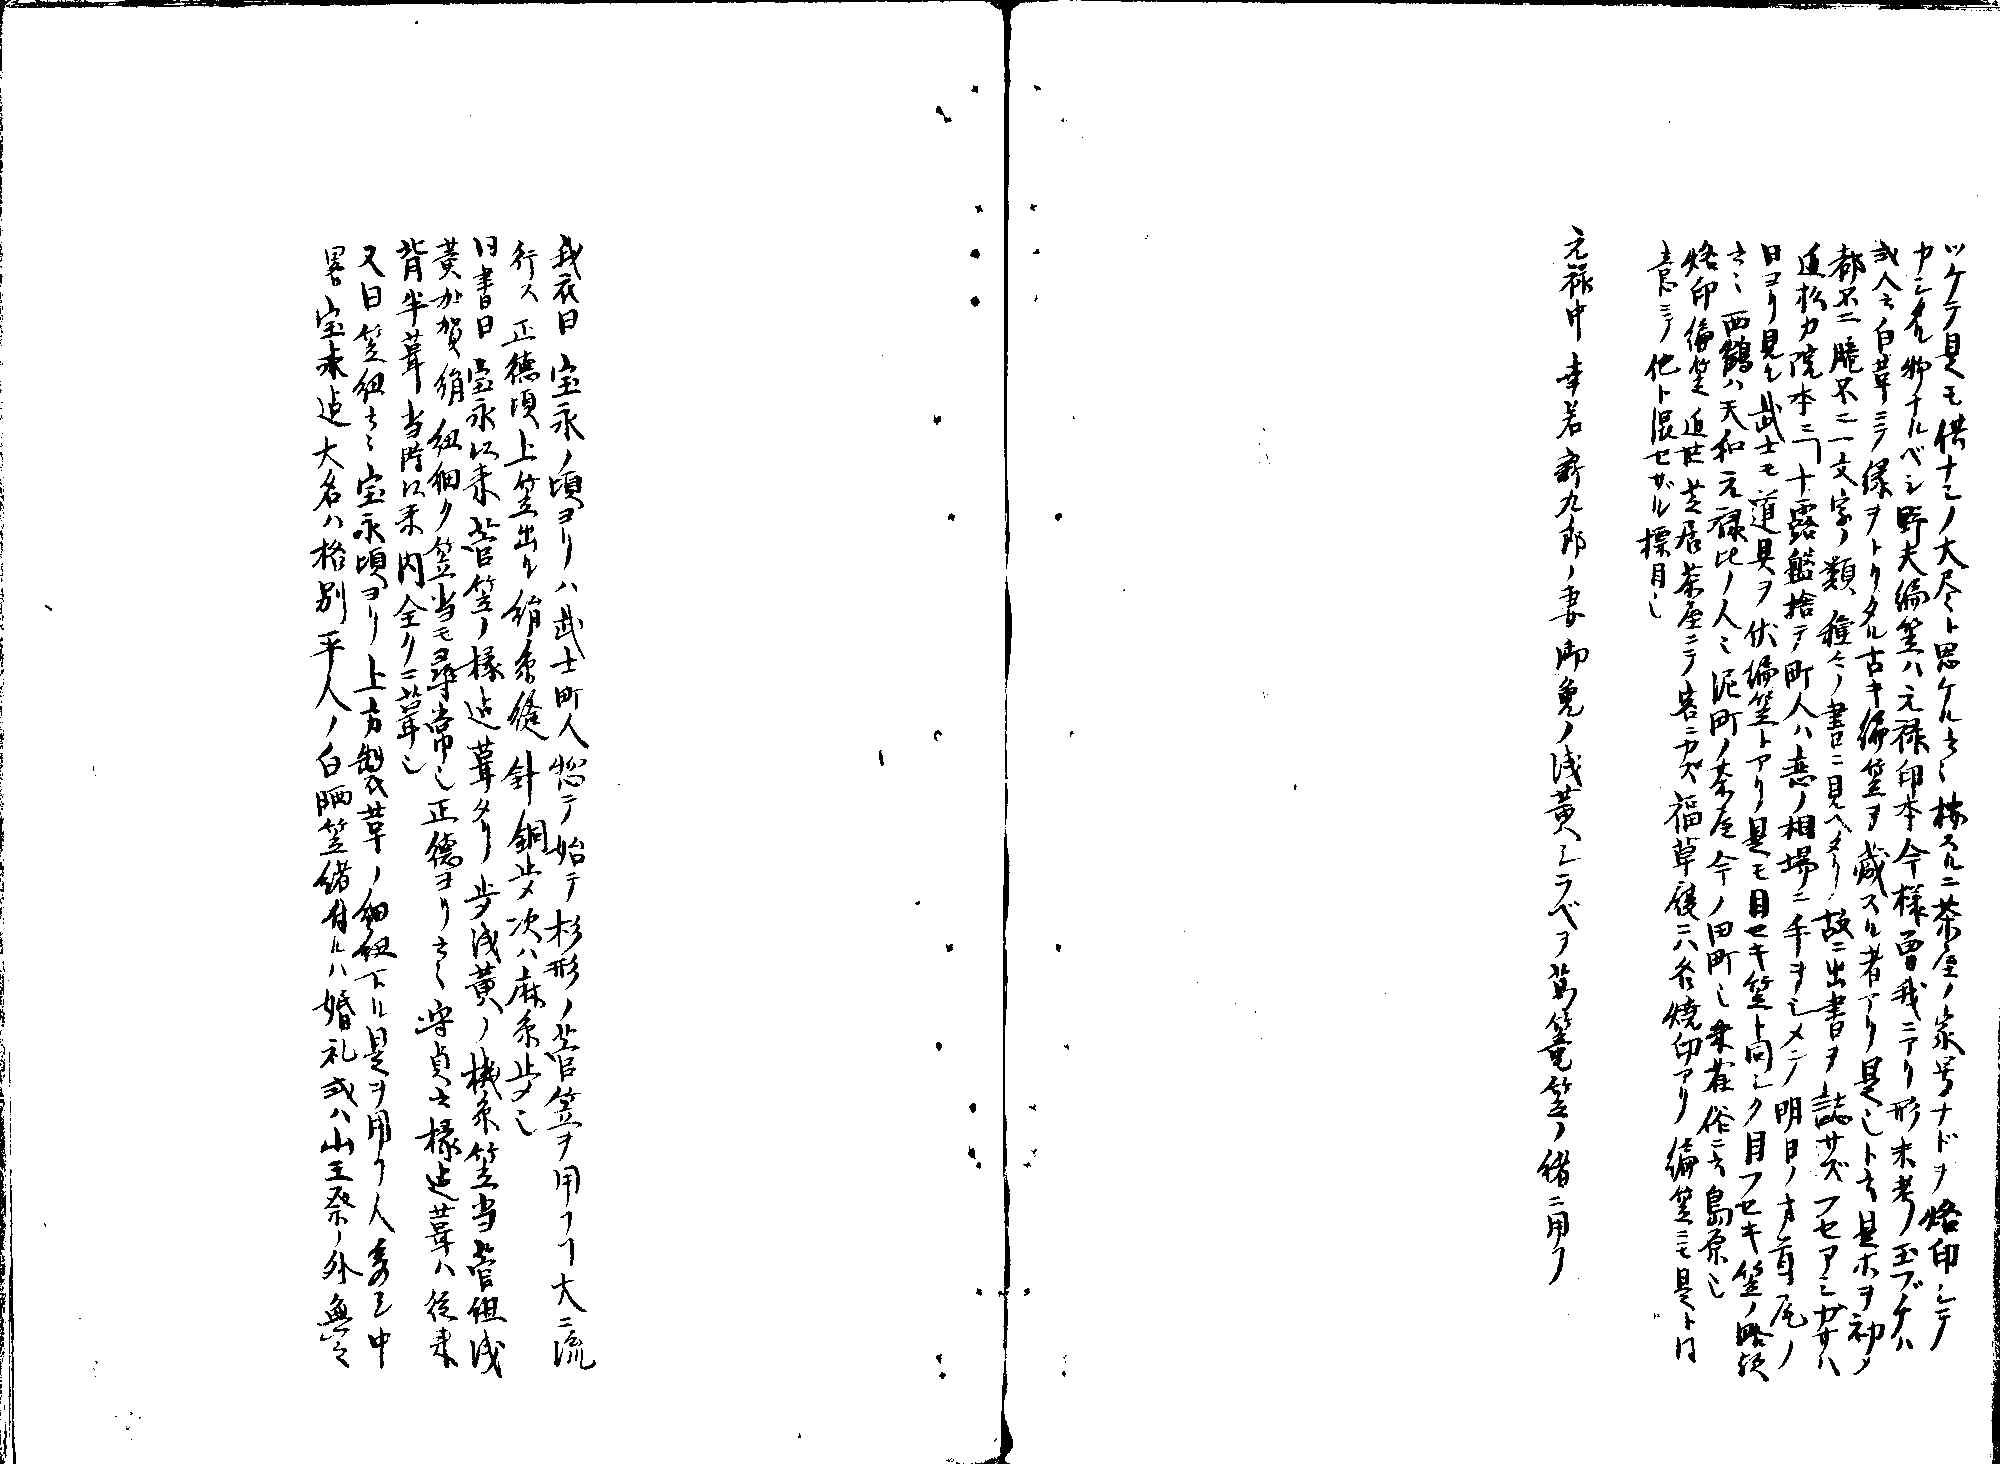 ツケテ是モ供ナミノ大尽ミト思ケル云々株スルニ茶屋ノ家号ナドヲ烙印シテ
カシタル物ナルベシ野夫編笠ハ元禄印本今様曽我ニアリ形未考ノ玉ブチハ
或人云白革ニテ縁ヲトリタル古キ編笠ヲ蔵スル者アリ是也ト云是ホヲ初メ
都不二朧不二一文字ノ類種々ノ書ニ見ヘタリ故ニ出書ヲ誌サズフセアミガサハ
近松カ院本ニ「十露盤捨テ町人ハ恋ノ相場ニ手ヲシメテ明日ノ方首尾ノ
日ヨリ見ル武士モ道具ヲ伏編笠トアリ是モ目セキ笠ト同シク目フセキ笠ノ略訓
云々西鶴ハ天和元禄比ノ人ミ泥町ノ茶屋今ノ田町也朱雀俗ニ云島原也
烙印編笠近世芝居茶屋ニテ客ニカス福草履ニハ各焼印アリ編笠ニモ是ト同
意ニテ他ト混セザル標目也
元禄中幸若新九郎ノ妻御免ノ浅黄シラベヲ葛篭笠ノ緒ニ用フ
我衣曰宝永ノ頃ヨリハ武士町人惣テ始テ杉形ノ菅笠ヲ用フコト大ニ流
行ス正徳頃上笠出ル絹糸縫針銅止メ次ハ麻糸止メ也
同書曰宝永以来菅笠ノ様迠葺タリ歩浅黄ノ機糸笠当菅組浅
黄カ加賀絹紐細ク笠当モ尋常也正徳ヨリ云々守貞云様迠葺ハ従来
背半葺当時以来内全クニ葺也
又曰笠紐云々宝永頃ヨリ上方製革ノ細紐下ル是ヲ用ク人多シ中
畧宝永迠大名ハ格別平人ノ白晒笠緒付ルハ婚礼或ハ山王祭ノ外無之